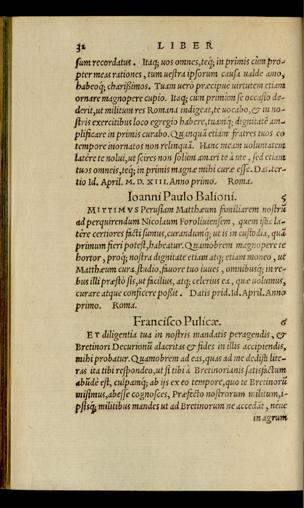 32 LIBER
sum recordatus. Itaq; uos omnes, teq; in primis cùm pro-
pter meas rationes, tum uestra ipsorum causa ualde amo,
habeoq; charißimos. Tuam uerò præcipue uirtutem etiam
ornare magnopere cupio. Itaq; cum primùm se occasio de-
derit, ut militum res Romana indigeat, te uocabo, & in no-
stris exercitibus loco egregio habere, tuamq; dignitatē am-
plificare in primis curabo. Quanquā etiam fratres tuos eo
tempore inornatos non relinquā. Hanc meam uoluntatem
latére te nolui, ut scires non solùm amari te à me, sed etiam
tuos omneis, teq; in primis magnæ mihi curæ esse. Dat. ter-
tio Id. April. M. D. XIII. Anno primo. Roma.
Ioanni Paulo Balioni. 5
MITTIMVS Perusiam Matthæum familiarem nostrū
ad perquirendum Nicolaum Foroliuiensem, quem istic la-
tére certiores facti sumus, curandumq; ut is in custodia, quā
primum fieri potest, habeatur. Quamobrem magnopere te
hortor, proq; nostra dignitate etiam atq; etiam moneo, ut
Matthæum cura, studio, fauore tuo iuues, omnibusq; in re-
bus illi præstò sis, ut facilius, atq; celerius ea, quæ uolumus,
curare atque conficere poßit. Datis prid. Id. April. Anno
primo. Roma.
Francisco Pulicæ. 6
ET diligentia tua in nostris mandatis peragendis, &
Bretinori Decurionū alacritas & fides in illis accipiendis,
mihi probatur. Quamobrem ad eas, quas ad me dedisti lite-
ras ita tibi respondeo, ut si tibi à Bretinorianis satisfactum
abūdè est, culpamq; ab ijs ex eo tempore, quo te Bretinorū
misimus, abesse cognosces, Præfecto nostrorum militum, i-
psisq; militibus mandes ut ad Bretinorum ne accedāt, neue
in agrum